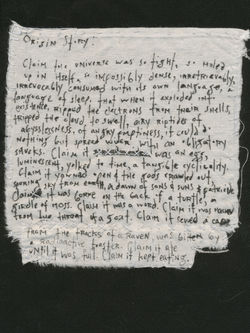 Origin Story:
Claim the universe was so tight, so holed
up in itself, so impossibly dense, irretrievably,
irrevocably consumed with its own language, a
language of sleep, that when it exploded into
existence, ripped the electrons from their shells,
tripped the cloud to swell, airy riptides of
abysslessness, or angry emptiness, it could do
nothing but spread wider. With obligatory
sharks. Claim it was an egg,
luminescent, yolked to time, a taxable cyclicality.
Claim it yawned open & the gods crawled out
spring sky from earth, a dawn of sons & suns & patricide.
Claim it was borne on the back of a turtle, a
girdle of moss. Claim it was a word. Claim it was
from the throat of a goat. Claim it served a
from the tracks of a raven, was bitten by
a radioactive toaster. Claim it ate
until it was full. Claim it kept eating.